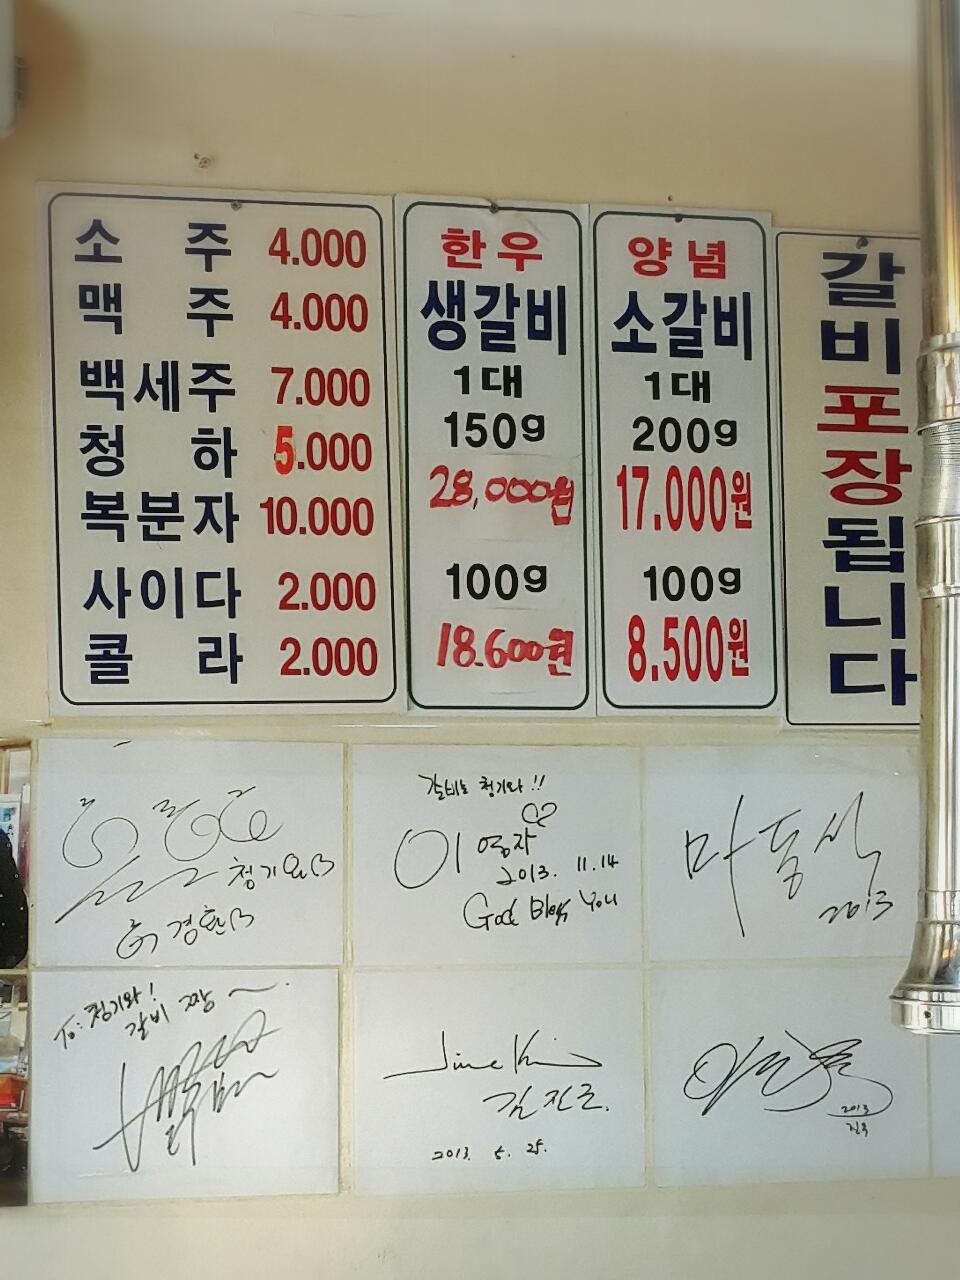 소 주 4.000
맥 주 4.000
백세주 7.000
청 하 5.000
복분자 10.000
사이다 2.000
콜 라 2.000
한우
생갈비
1대
150g
28,000원
100g
18.600원
양념
소갈비
1대
200g
17.000원
100g
8.500원
갈비포장됩니다
갈비는 청기와!!
이영자
2013. 11.14
God Bless You
마동석
2013
To: 청기와!
갈비 짱~.
2013. 5. 25.
2013